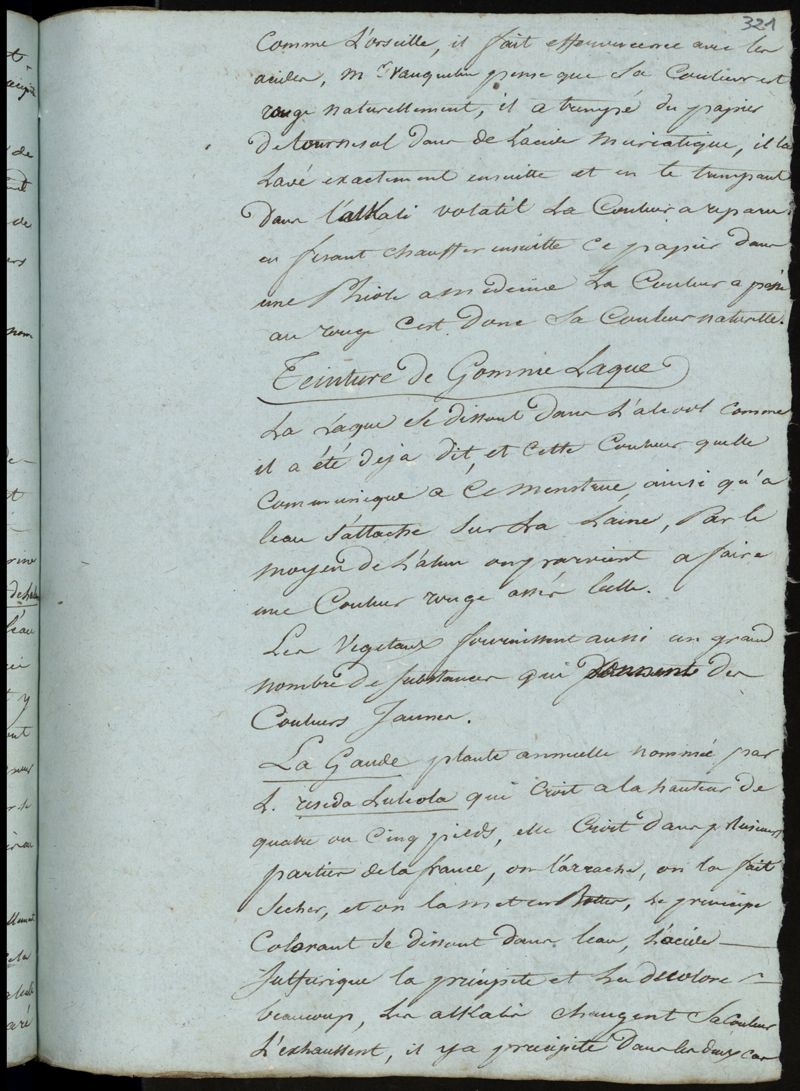 321
Comme L'orseille, il fait effervescence avec les
acides, Mr Vauquelin pense que Sa Couleur est
rouge naturellement, il a trempé du papier
de tournesol dans de L'acide muriatique, il l'a
Lavé exactement ensuitte et en le trempant
dans l'alKali volatil La Couleur a reparu
en fesant chauffer ensuitte ce papier dans
une Phiole a medecine La Couleur a passé
au rouge c'est donc Sa Couleur naturelle.
Teinture de Gomme Laque
La Laque Se dissout dans L'alcool comme
il a été deja dit, et cette Couleur quelle
Communique a ce menstrue, ainsi qu'a
leau S'attache Sur La Laine, Par le
moyen de L'alun on parvient a faire
une Couleur rouge assés belle.
Les Vegetaux fournissent aussi un grand
nombre de Substances qui donnent des
Couleurs Jaunes.
La Gaude plante annuelle nommée par
L. reseda Luteola qui Croit a la hauteur de
quatre ou Cinq pieds, elle Croit dans plusieurs
parties de la france, on l'arrache, on la fait
Secher, et on la met en Bottes, Le principe
Colorant Se dissout dans leau, L'acide
Sulfurique la précipite et La decolore
beaucoup, Les alkalis changent Sa couleur
L'exhaussent, il y a precipité dans les deux cas